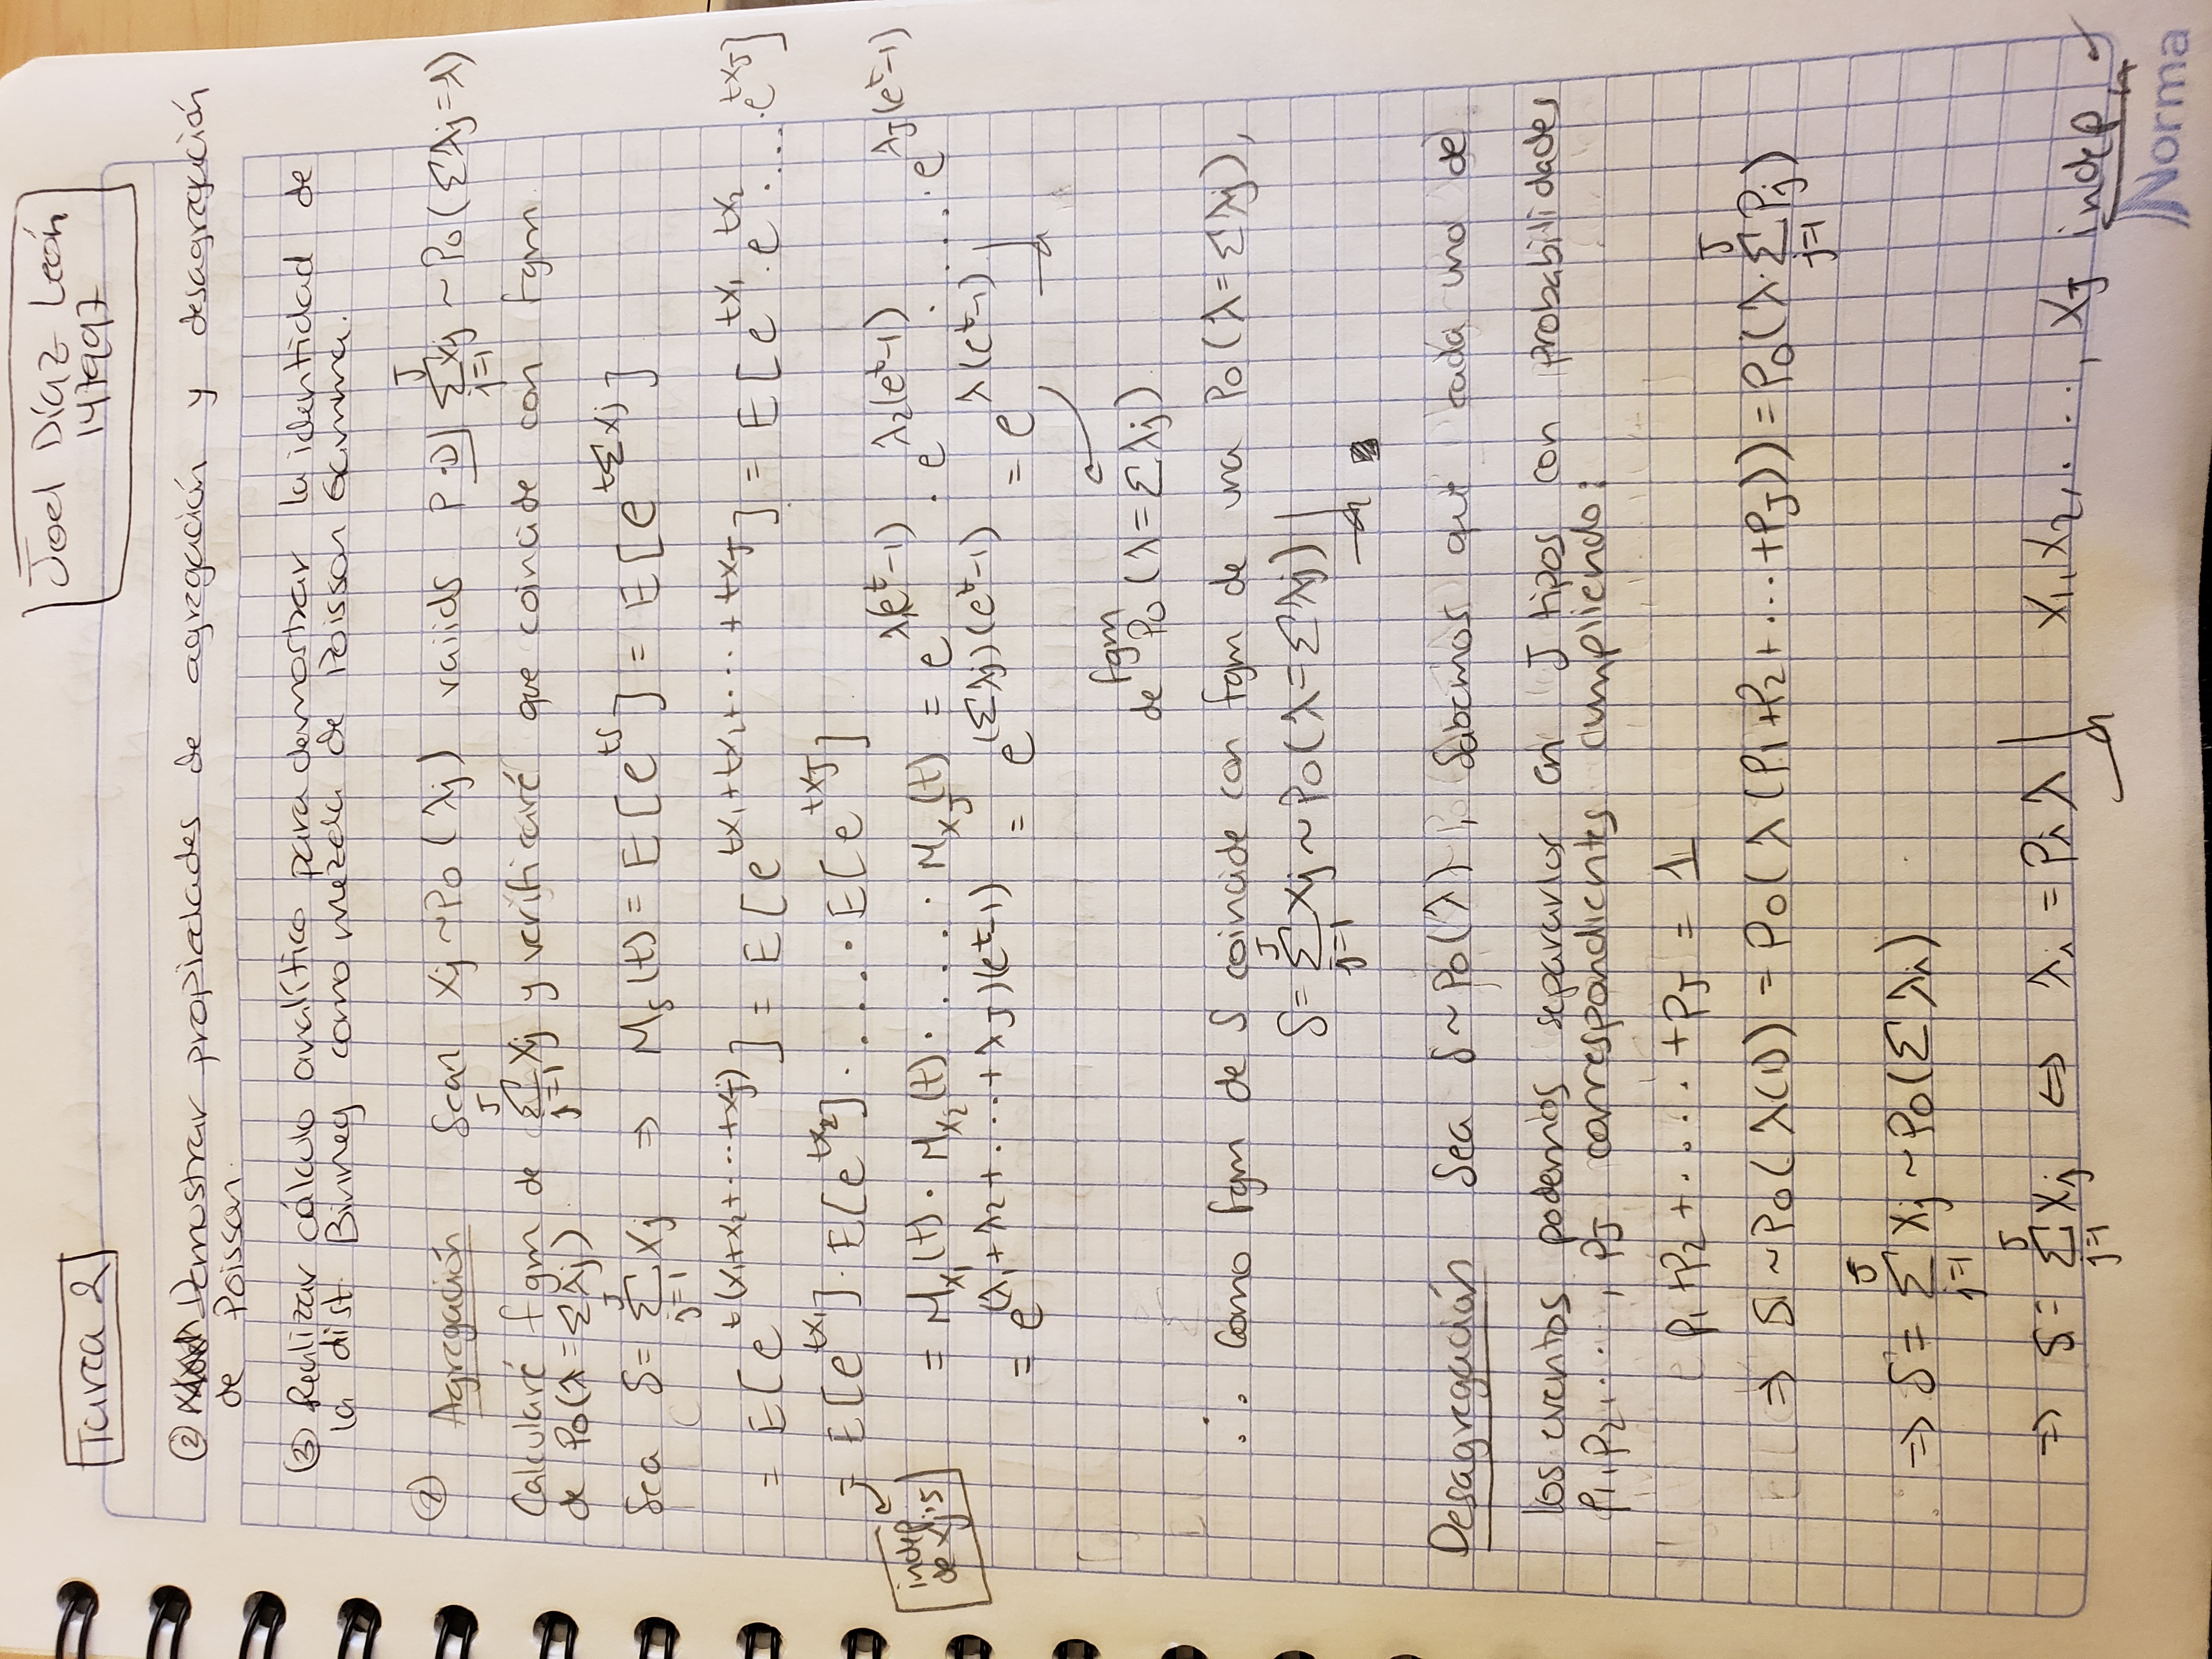 Tarea 2
Joel Díaz León
147997
② Demostrar propiedades de agregación y desagregación
de Poisson.
③ Realizar cálculo analítico para demostrar la identidad de
la dist. BinNeg como mezcla de Poisson Gamma.
② Agregación Sean Xj ~ Po(λj) vaiids P.D| Σ_{j=1}^{J} Xj ~ Po(Σλj = λ)
Calcularé fgm de Σ_{j=1}^{J} Xj y verificaré que coincide con fgm
de Po(λ = Σλj)
Sea S = Σ_{j=1}^{J} Xj ⇒ M_S(t) = E[e^{tS}] = E[e^{tΣXj}]
= E[e^{t(X₁+X₂+....+XJ)}] = E[e^{tX₁+tX₂+....+tXJ}] = E[e^{tX₁}.e^{tX₂}.....e^{tXJ}]
= E[e^{tX₁}]. E[e^{tX₂}]. .... E[e^{tXJ}]
indep
de Xj's
= M_{X₁}(t). M_{X₂}(t). .... M_{XJ}(t) = e^{λ₁(e^t-1)} . e^{λ₂(e^t-1)} . .... e^{λJ(e^t-1)}
= e^{(λ₁+λ₂+....+λJ)(e^t-1)} = e^{(Σλj)(e^t-1)} = e^{λ(e^t-1)}
fgm
de Po(λ = Σλj)
∴ Como fgm de S coincide con fgm de una Po(λ = Σλj),
S = Σ_{j=1}^{J} Xj ~ Po(λ = Σλj)
Desagregación Sea S ~ Po(λ), Sabemos que cada uno de
los eventos podemos separarlos en J tipos con probabilidades
p₁, p₂, ...., pJ correspondientes cumpliendo:
p₁ + p₂ + ..... + pJ = 1
⇒ S ~ Po(λ(1)) = Po(λ(p₁+p₂+...+pJ)) = Po(λ.Σ_{j=1}^{J} Pj)
⇒ S = Σ_{j=1}^{J} Xj ~ Po(Σ λi)
⇒ S = Σ_{j=1}^{J} Xj ⇔ λi = Pi λ X₁, X₂, ...., XJ indep
Norma